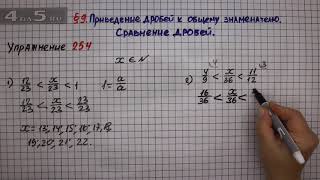 §9. Приведение дробей к общему знаменателю.
Сравнение дробей.
Упражнение 254
x ∈ N
1) 12/23 < x/23 < 1   1 = a/a
12/23 < x/23 < 23/23
x = 13, 14, 15, 16, 17, 18
19, 20, 21, 22.
2) 4/9 < x/36 < 11/12
16/36 < x/36 <